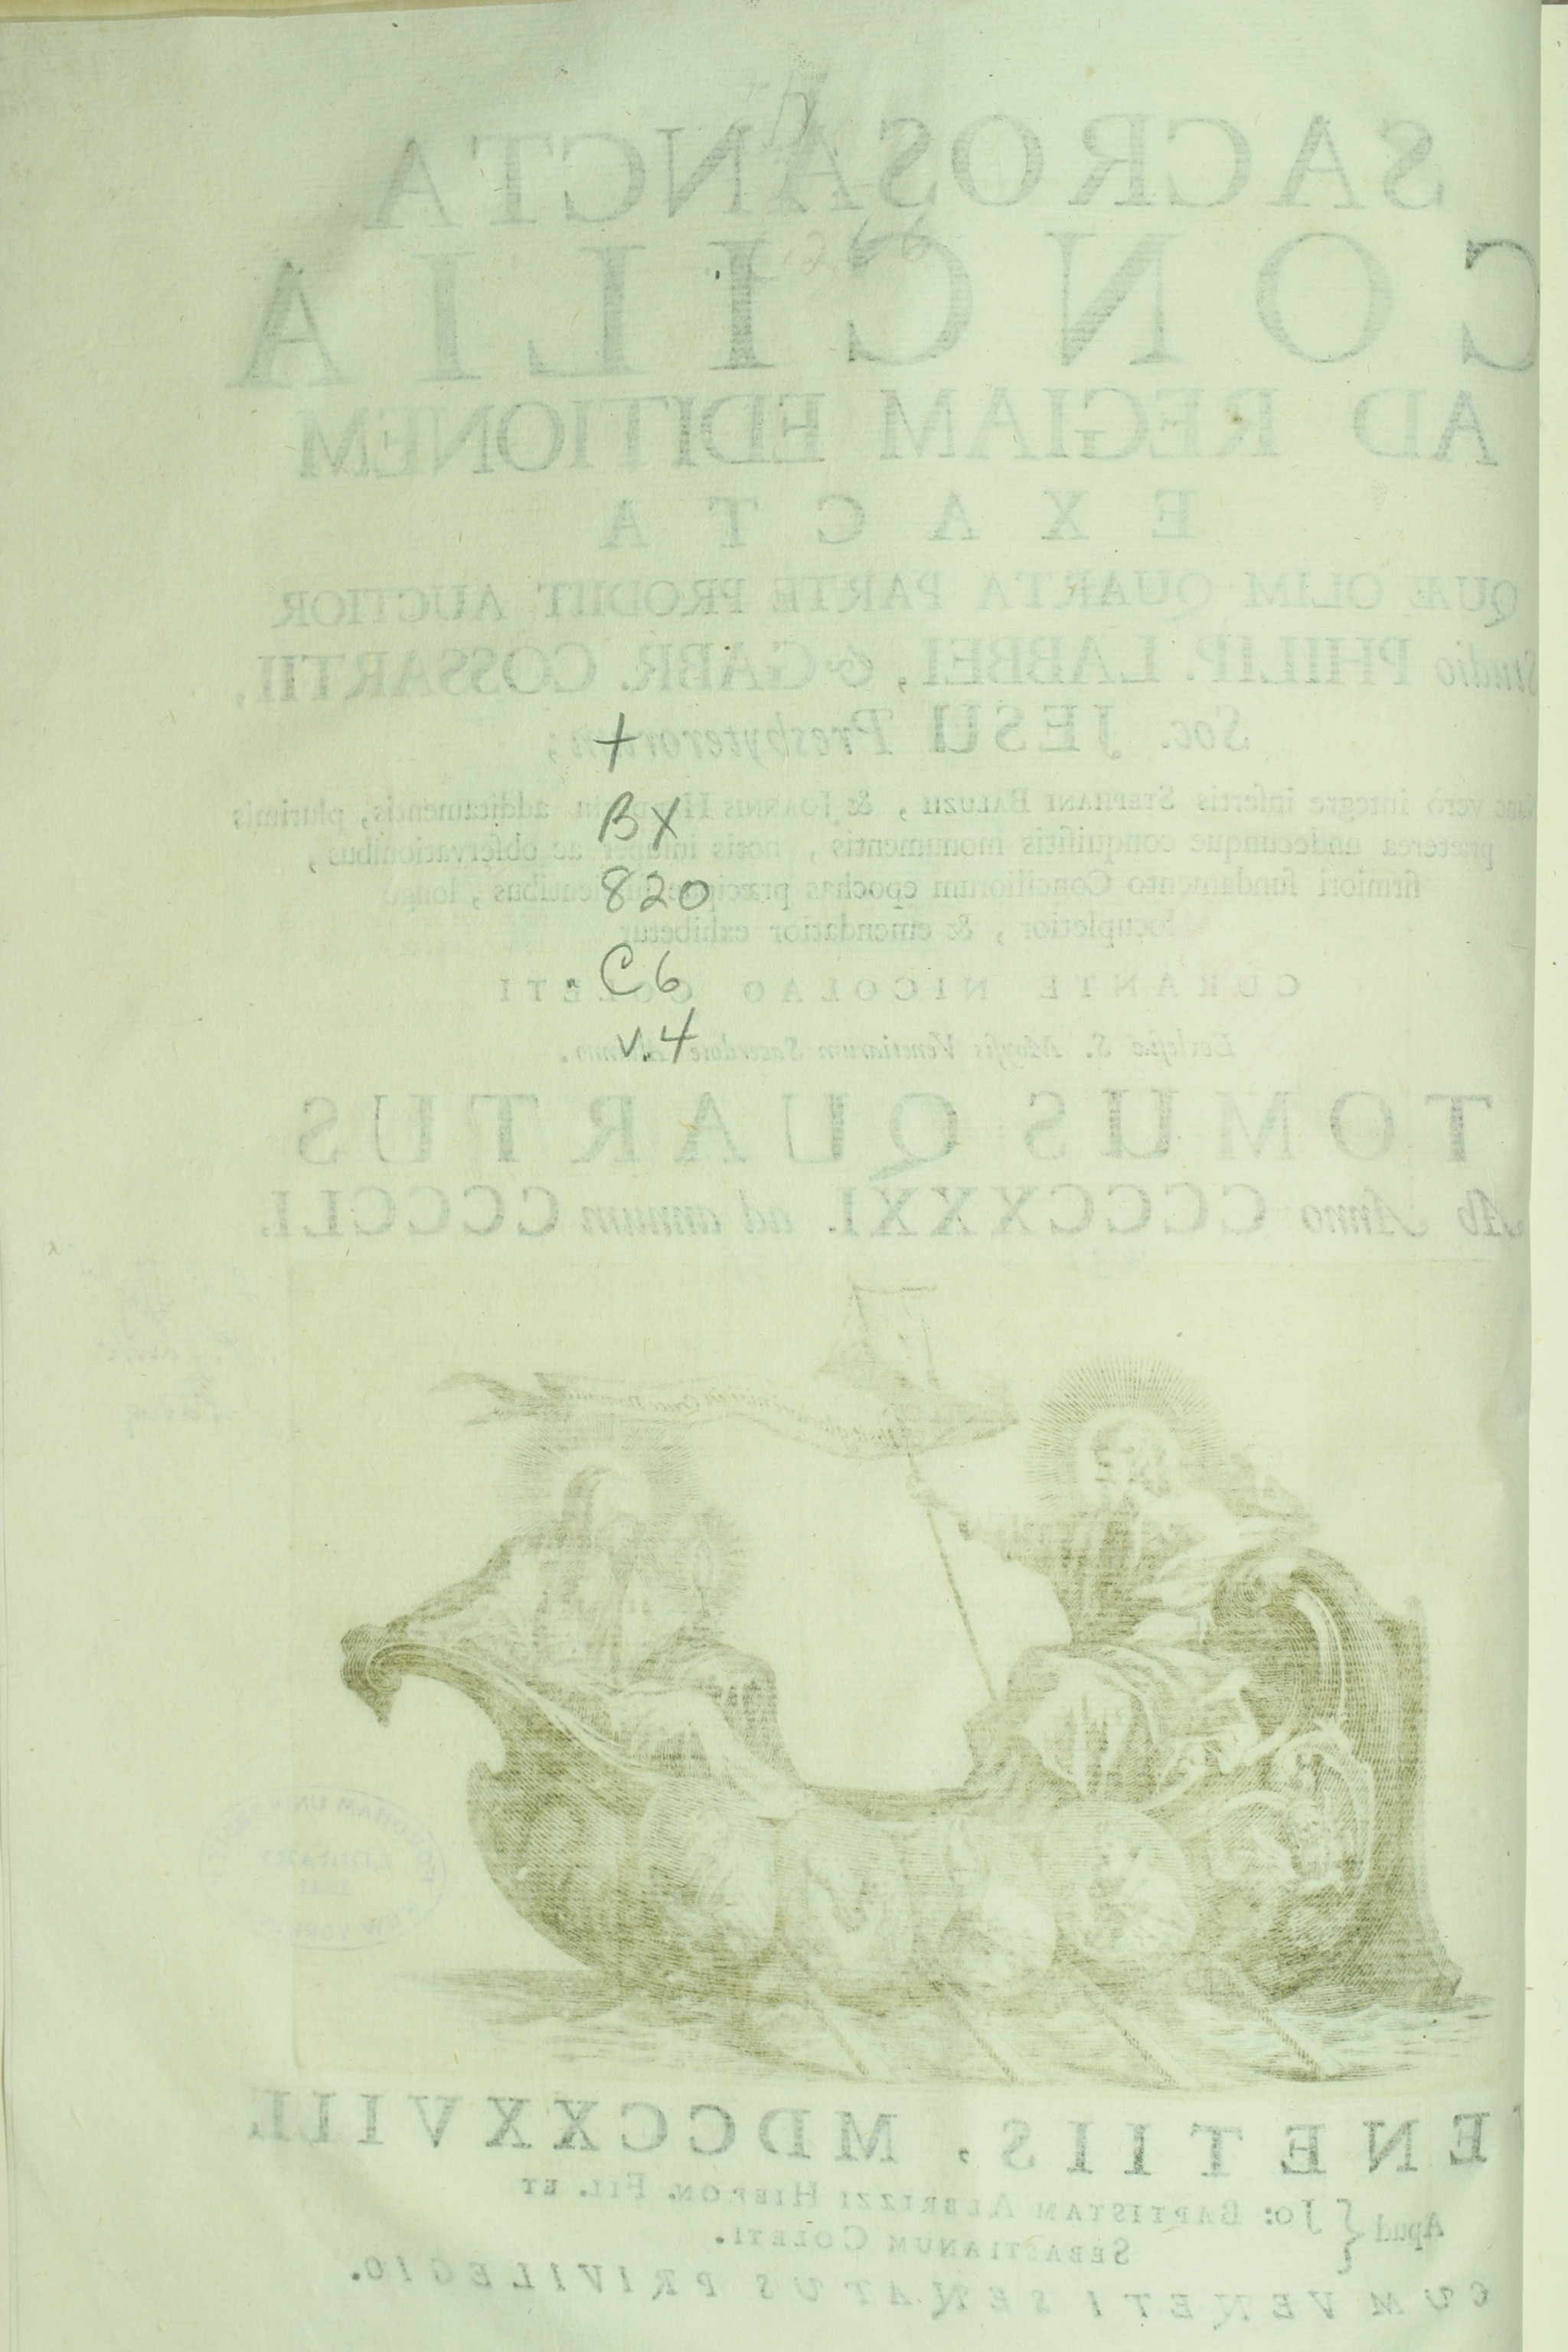 +
BX
820
.C6
v.4
SACROSANCTA
CONCILIA
AD REGIAM EDITIONEM
EXACTA
QUÆ OLIM QUARTA PARTE PRODIIT AUCTIOR
Studio PHILIP. LABBEI, & GABR. COSSARTII,
Soc. JESU Presbyterorum;
Nunc verò integre insertis STEPHANI BALUZII, & JOANNIS additamentis, plurimis
præterea undecunque conquisitis monumentis, notis insuper ac observationibus,
firmiori fundamento Conciliorum epochas longe
locupletior, & emendatior exhibetur
CURANTE NICOLAO COLETI
Ecclesiæ S. Moysis Venetiarum Sacerdote
TOMUS QUARTUS
Ab Anno CCCCXXXI. ad annum CCCCLI.
VENETIIS, MDCCXXVIII.
Apud { Jo: BAPTISTAM ALBRIZZI HIERON. FIL. ET
SEBASTIANUM COLETI.
CUM VENETI SENATUS PRIVILEGIO.